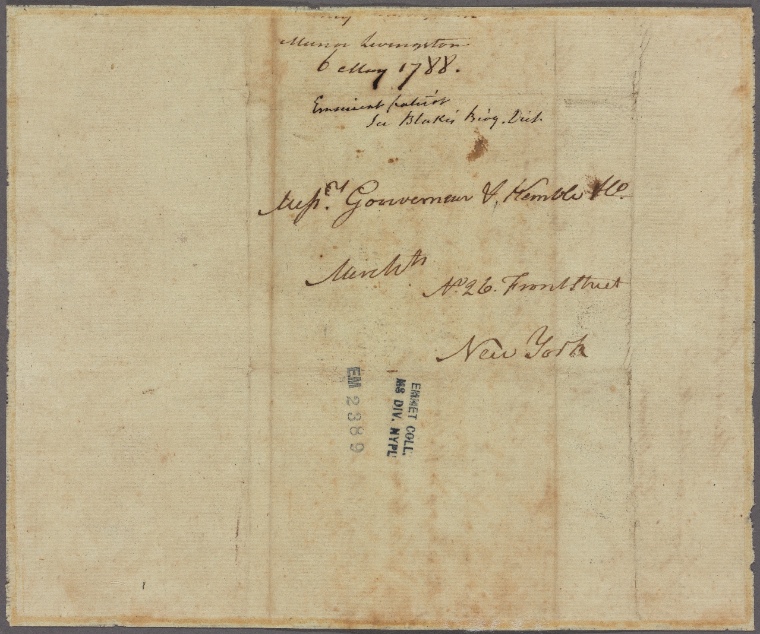 Manor Livingston
6 May 1788.
Eminent patriot
See Blake's Biog. Dict.
Messrs. Gouverneur & Kemble & Co.
Merchts
No. 26. Front Street
New York
EMMET COLL.
MS DIV. NYPL
EM 2389